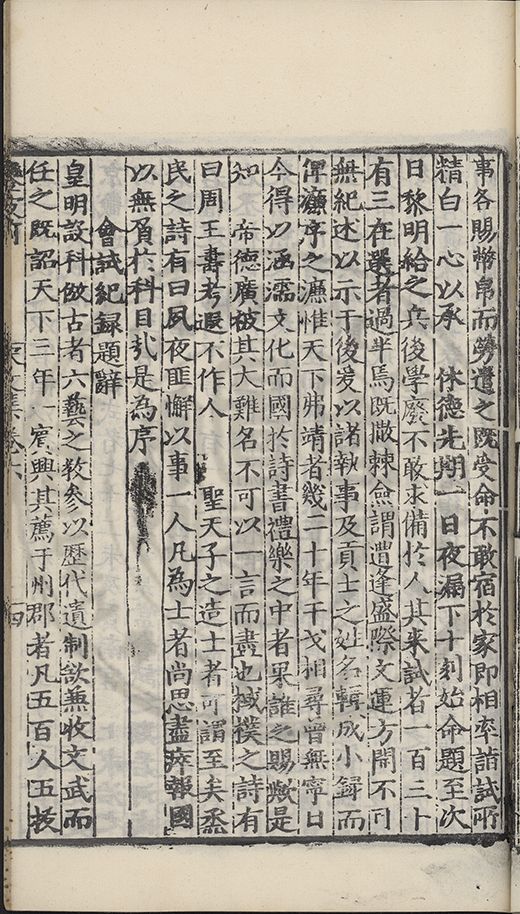 事各賜幣帛而勞遣之既受命不敢宿於家即相率詣試所
精白一心以承 休德先期一日夜漏下十刻始命題至次
日黎明給之兵後學廢不敢求備於人其來試者一百三十
有三在選者過半焉既撤棘僉謂遭逢盛際文運方開不可
無紀述以示于後爰以諸執事及貢士之姓名輯成小錄而
俾濂序之濂惟天下弗靖者幾二十年干戈相尋曾無寧日
今得以涵濡文化而國於詩書禮樂之中者果誰之賜歟是
知 帝德廣被其大難名不可以一言而盡也棫樸之詩有
曰周王壽考遐不作人 聖天子之造士者可謂至矣烝
民之詩有曰夙夜匪懈以事一人凡為士者尚思盡瘁報國
以無負於科目哉是為序
會試紀録題辭
皇明設科倣古者六藝之教參以歷代遺制欲兼收文武而
任之既詔天下三年一賓興其薦于州郡者凡五百人五拔